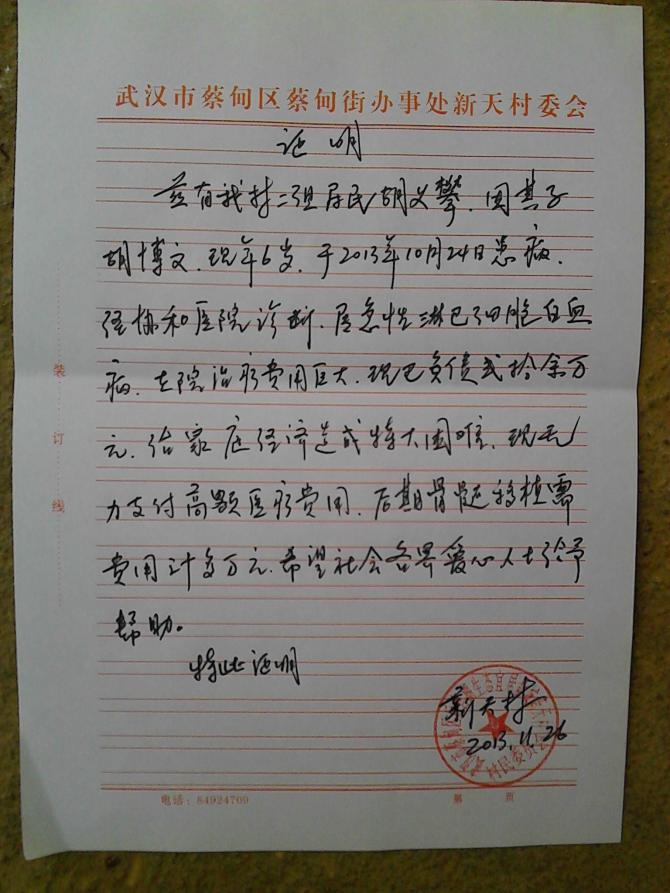 武汉市蔡甸区蔡甸街办事处新天村委会
证明
兹有我村二组居民胡义攀,因其子
胡博文,现年6岁,于2013年10月24日患病,
经协和医院诊断,属急性淋巴细胞白血
病,在院治疗费用巨大,现已负债贰拾余万
元,给家庭经济造成特大困难,现无
力支付高额医疗费用,后期骨髓移植需
费用计多万元,希望社会各界爱心人士给予
帮助。
特此证明
新天村
2013.11.26
村民委员会
装
订
线
电话:84924709
第 页